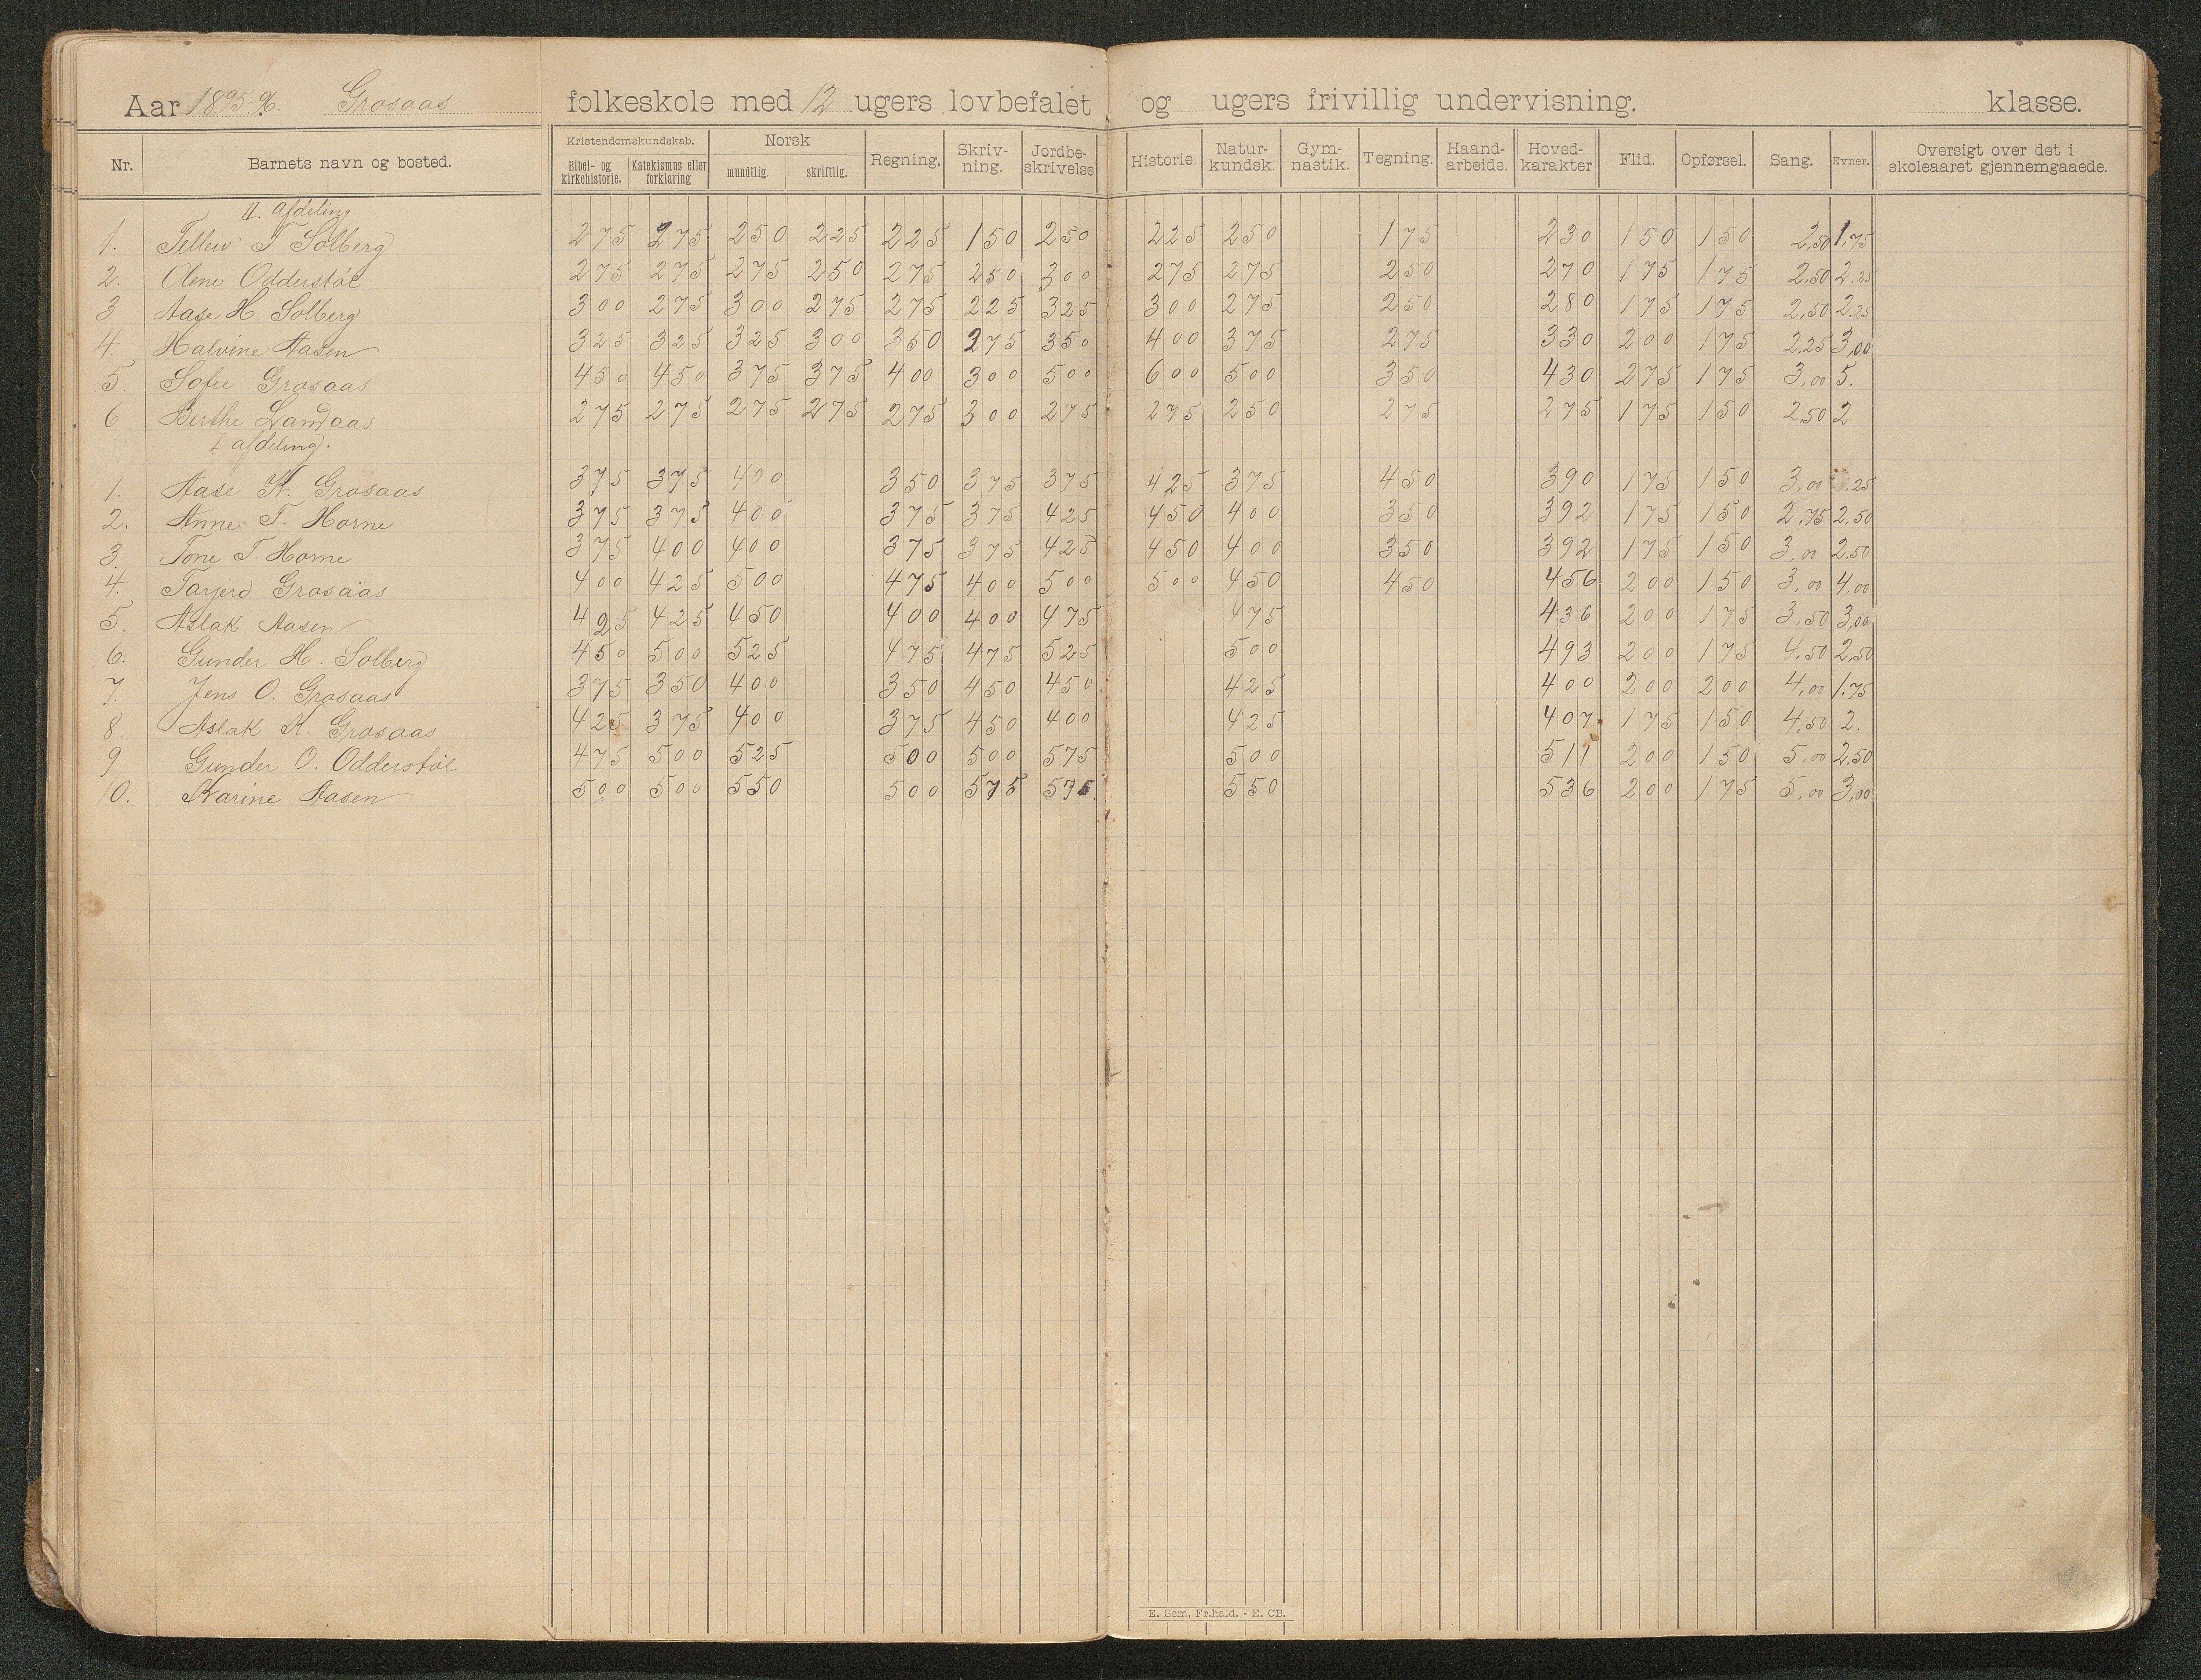 Aar 1895-96. Grosaas folkeskole med 12 ugers lovbefalet og ugers frivillig undervisning. klasse.
Nr. Barnets navn og bosted. Kristendomskundskab. Bibel- og kirkehistorie. Katekismus eller forklaring Norsk mundtlig. skriftlig. Regning. Skriv-ning. Jordbe-skrivelse Historie. Natur-kundsk. Gym-nastik. Tegning. Haand-arbeide. Hoved-karakter Flid. Opførsel. Sang. Evner. Oversigt over det i skoleaaret gjennemgaaede.
II. afdeling.
1. Telleiv T. Solberg 275 275 250 225 225 150 250 225 250 175 230 150 150 2,50 1,75
2. Olene Odderstøl 275 275 275 250 275 250 300 275 275 250 270 175 175 2.50 2.25
3 Aase H. Solberg 300 275 300 275 275 225 325 300 275 250 280 175 175 2,50 2.25
4. Halvine Aasen 325 325 325 300 350 275 350 400 375 275 330 200 175 2,25 3,00
5. Sofie Grosaas 450 450 375 375 400 300 500 600 500 350 430 275 175 3,00 5.
6 Berthe Landaas 275 275 275 275 275 300 275 275 250 275 275 175 150 2,50 2
I afdeling.
1. Aase K. Grosaas 375 375 400 350 375 375 425 375 450 390 175 150 3,00 .25
2. Anne T. Horne 375 375 400 375 375 425 450 400 350 392 175 150 2,75 2,50
3. Tone T. Horne 375 400 400 375 375 425 450 400 350 392 175 150 3,00 2.50
4. Tarjerd Grosaas 400 425 500 475 400 500 500 450 450 456 200 150 3,00 4,00
5. Aslak Aasen 425 425 450 400 400 475 475 436 200 175 3,50 3,00
6. Gunder H. Solberg 450 500 525 475 475 525 500 493 200 175 4,50 2,50
7. Jens O. Grosaas 375 350 400 350 450 450 425 400 200 200 4,00 1.75
8. Aslak K. Grosaas 425 375 400 375 450 400 425 407 175 150 4,50 2.
9 Gunder O. Odderstøl 475 500 525 500 500 575 500 511 200 150 5.00 2,50
10. Karine Aasen 500 500 550 500 575 575 550 536 200 175 5,00 3,00
E. Sem, Fr.hald. - E. CB.